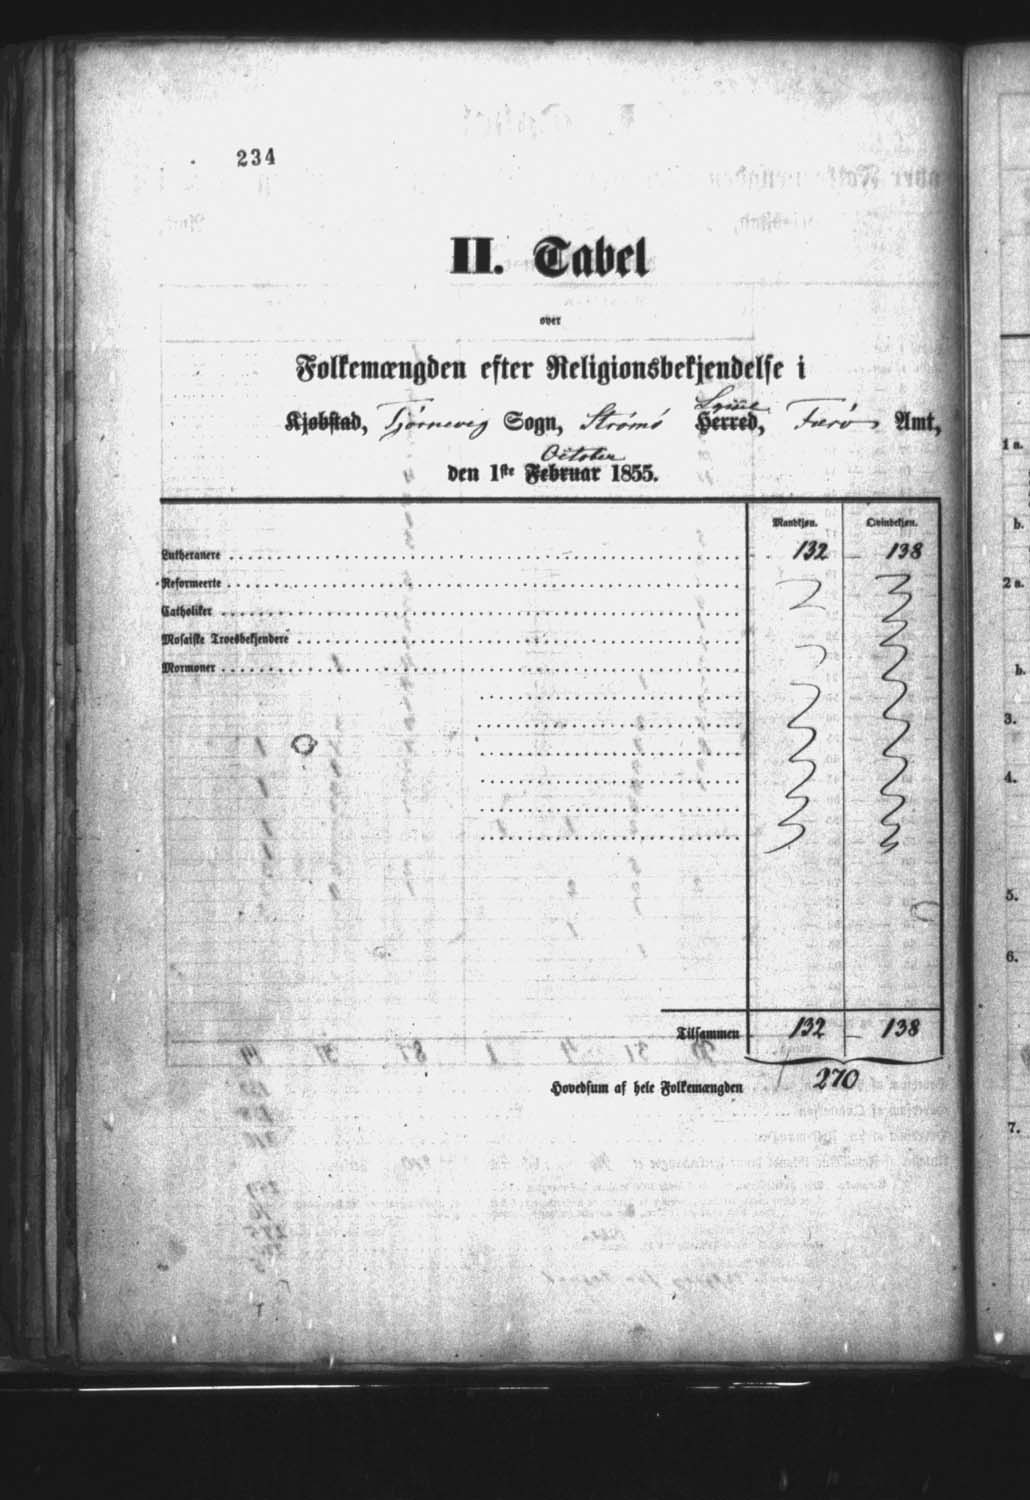 234
II. Tabel
over
Folkemængden efter Religionsbekjendelse i
Kjøbstad, Tjørnevig Sogn, Strømø Syssel Herred, Færø Amt,
October
den 1ste Februar 1855.
Mandkjøn. Qvindekjøn.
Lutheranere 132 138
Reformeerte
Catholiker
Mosaiske Troesbekjendere
Mormoner
Tilsammen 132 138
Hovedsum af hele Folkemængden 270
1 a.
b.
2 a.
b.
3.
4.
5.
6.
7.